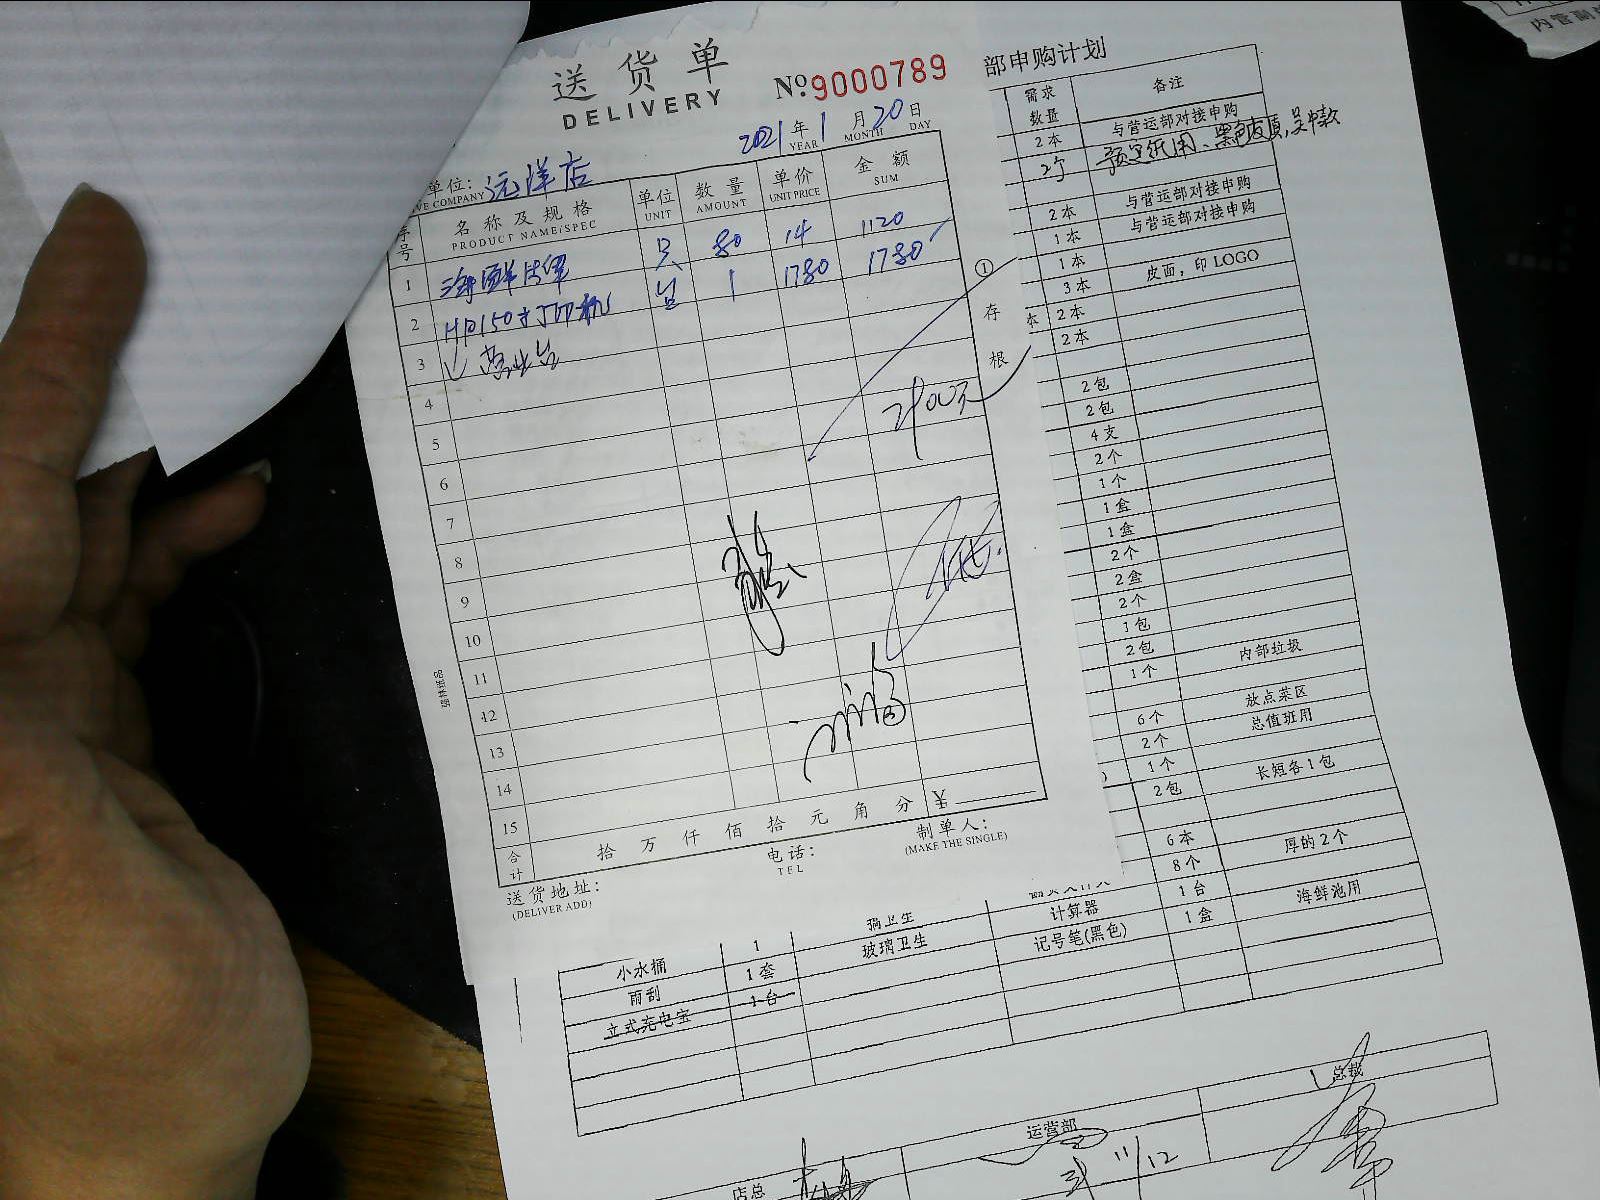 送货单
DELIVERY
No.9000789
2021年1月20日
YEAR MONTH DAY
单位: 远洋店
VE COMPANY
序号 名称及规格 单位 数量 单价 金额
PRODUCT NAME/SPEC UNIT AMOUNT UNIT PRICE SUM
1 海鲜 只 80 14 1120
2 HP150 台 1 1780 1780
3 营业台
4
5
6
7
8
9
10
11
12
13
14
15
合计 拾 万 仟 佰 拾 元 角 分 ¥
电话:
TEL
制单人:
(MAKE THE SINGLE)
送货地址:
(DELIVER ADD)
①存根
部申购计划
需求数量 备注
2本 与营运部对接申购
2个
2本 与营运部对接申购
1本 与营运部对接申购
1本
3本 皮面，印LOGO
本 2本
2本
2包
2包
4支
2个
1个
1盒
1盒
2个
2盒
2个
1包
2包
1个 内部垃圾
6个 放点菜区
2个 总值班用
1个
2包 长短各1包
6本
8个 厚的2个
小水桶 1 卫生 计算器 1台 海鲜池用
雨刮 1套 玻璃卫生 记号笔(黑色) 1盒
立式充电宝 1台
店总 运营部 总裁
11/12
内管副